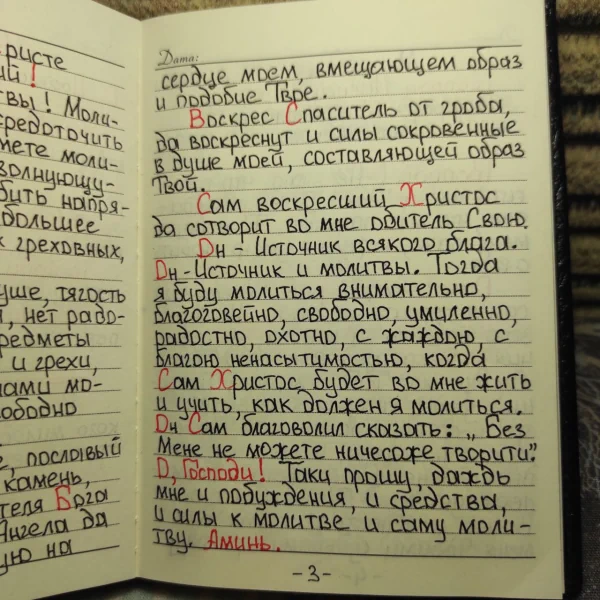 ристе
ий!
твы! Моли-
средоточить
мете моли-
волнующу-
бить напря-
большее
х греховных,
уше, тягость
, нет радо-
редметы
и грехи,
нами мо-
вободно
е, пославый
камень,
ителя Бога
Ангела да
ую на
Дата:
сердце моем, вмещающем образ
и подобие Твре.
Воскрес Спаситель от гроба,
да воскреснут и силы сокровенные
в душе моей, составляющей образ
Твой.
Сам воскресший Христос
да сотворит во мне обитель Свою.
Он - Источник всякого блага.
Он - Источник и молитвы. Тогда
я буду молиться внимательно,
благоговейно, свободно, умиленно,
радостно, охотно, с жаждою, с
благою ненасытимостью, когда
Сам Христос будет во мне жить
и учить, как должен я молиться.
Он Сам благоволил сказать: „Без
Мене не можете ничесоже творити".
О, Господи! Таки прошу, даждь
мне и побуждения, и средства,
и силы к молитве и саму моли-
тву. Аминь.
-3-